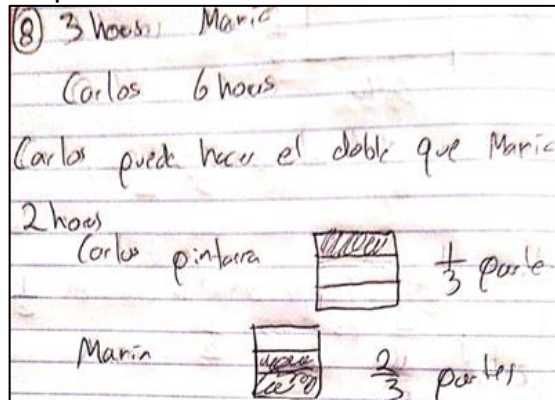 ⑧ 3 horas, Maria
Carlos 6 horas
Carlos puede hacer el doble que Maria
2 horas
Carlos pintara 1/3 parte
Maria 2/3 partes